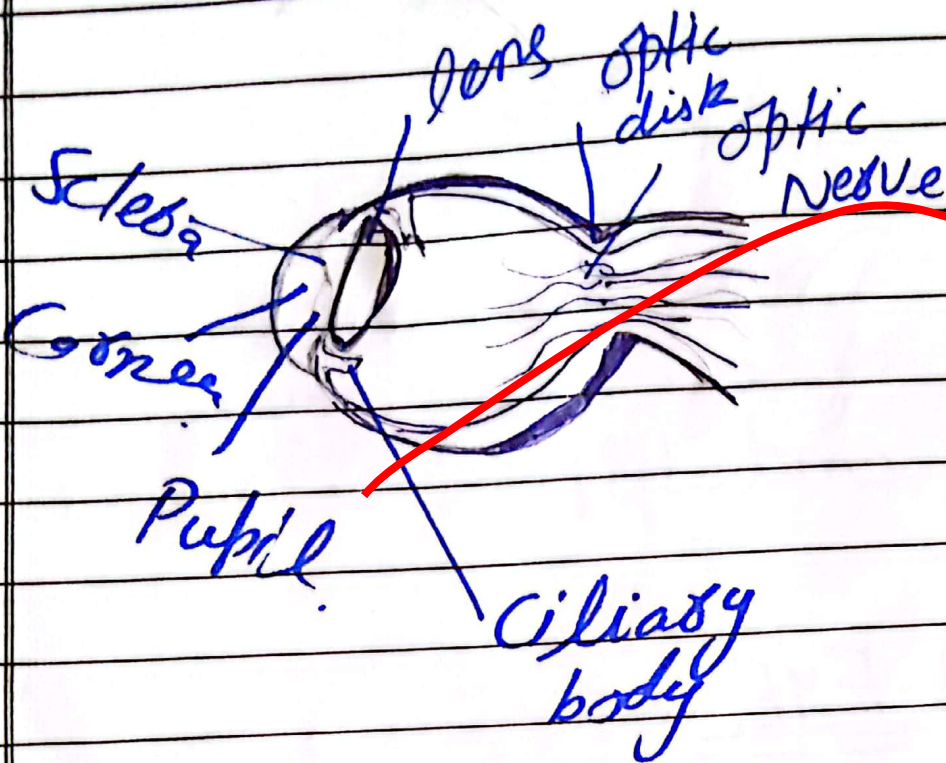 lens
optic
disk
optic
Nerve
Sclera
Cornea
Pupil.
Ciliary
body